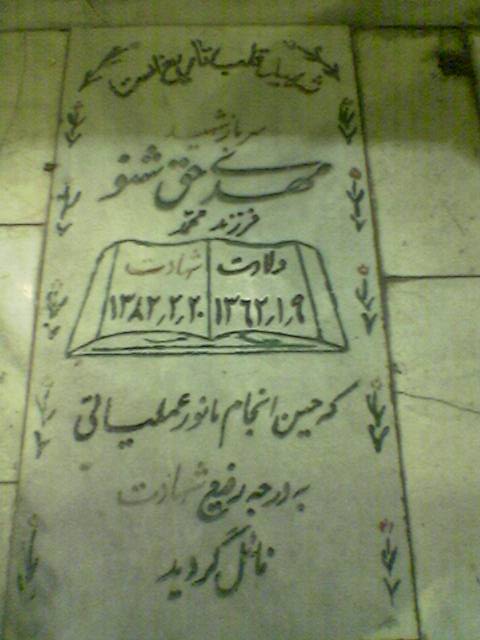 شهید قلب تاریخ است
سرباز شهید
مهدی حق شنو
فرزند محمد
ولادت شهادت
۱۳۶۲٫۱٫۹ ۱۳۸۲٫۲٫۲۰
که حین انجام مانور عملیاتی
به درجه رفیع شهادت
نائل گردید